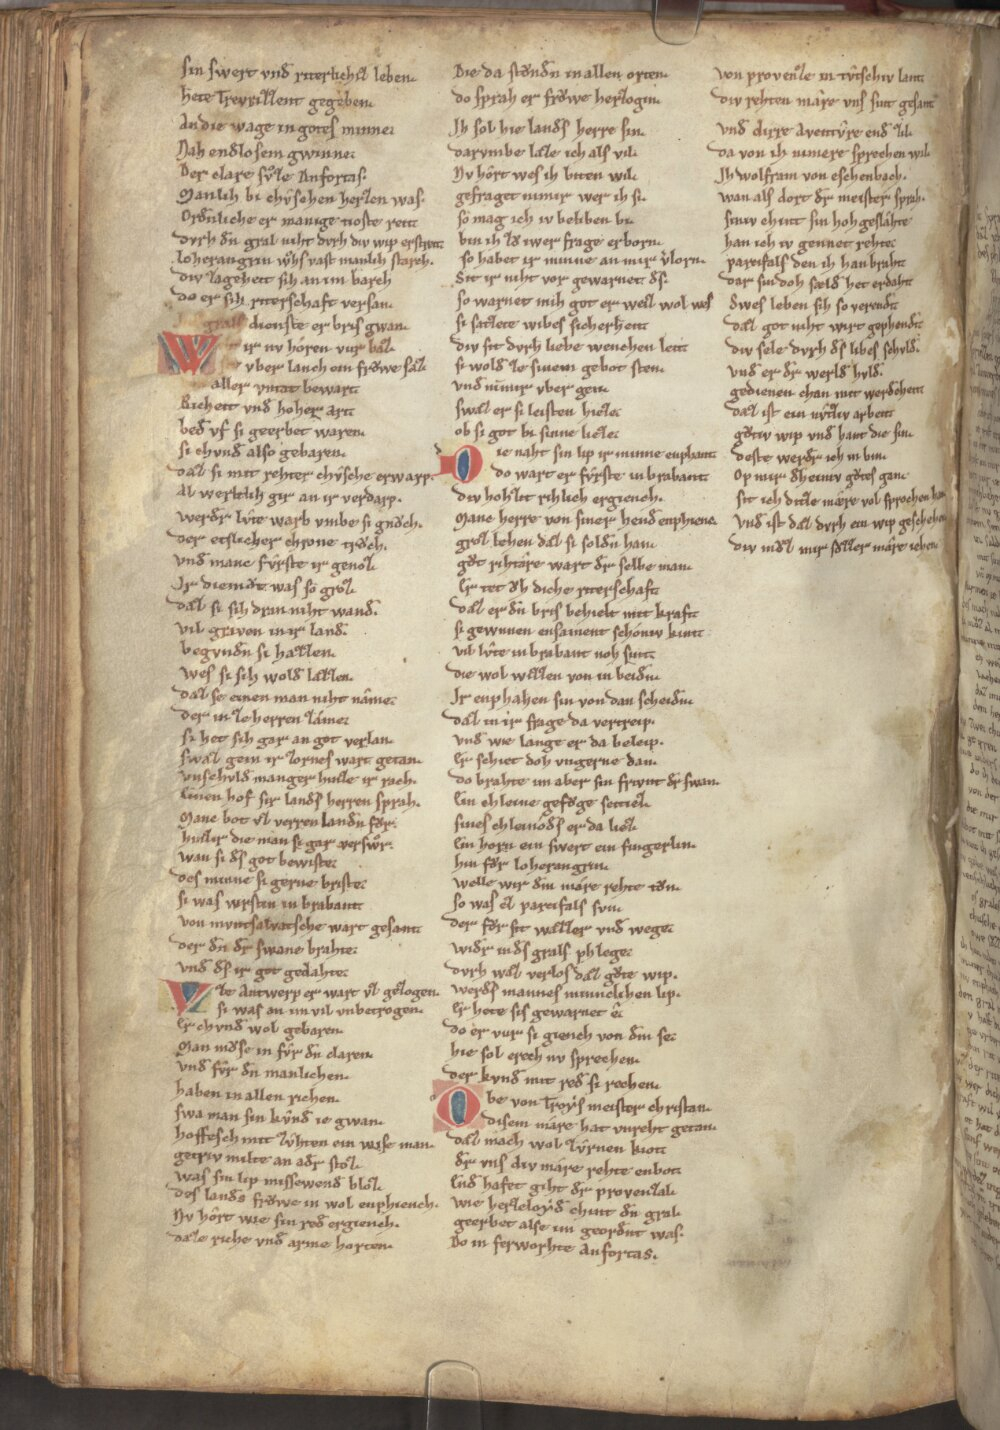 sin swert vnd riterlichiz leben.
hete Trevrizzent gegeben.
An die wage in gotes minne.
Nah endlosem gwinne.
Der clare sv̂ze Anfortas.
Manlih bi chv̂schen herzen was.
Ordnliche er manige tioste reit
dvrh dn gral niht dvrh div wip er streit
loherangrin wh̾s vast manlih starch.
div zageheit sih an im barch
do er sih riterschaft versan.
grals dienste er bris gwan.
Wir nv hôren vur baz.
vber lanch ein frŏwe saz
aller vntat bewart
Richeit vnd hoher art
bed vf si geerbet waren.
si chvnd also gebaren.
daz si mit rehter chv̂sche erwarp.
al werltlich gir an ir verdarp.
werdr lv̂te warb vmbe si gnv̊ch.
der etslicher chrone trv̊ch.
vnd manc fv̂rste ir genoz.
Ir diemv̊t was so groz.
daz si sih dran niht wand.
vil graven in ir land.
begvndn si hazzen.
wes si sih wold lazzen.
daz se einen man niht nâme.
der in ze herren zâme.
si het sih gar an got verlan.
swaz gein ir zornes wart getan.
vnschvld manger hulle ir rach.
Einen hof sir lands herren sprah.
Manc bot vz verren landn fv̊r.
hinzir die man si gar verswv̊r.
wan si ds got bewiste.
des minne si gerne briste.
si was vrstin in brabant
von mvntsalvatsche wart gesant.
der dn dr swane brahte.
vnd ds ir got gedahte.
Ze Antwerp er wart vz gezogen.
si was an im vil vnbetrogen.
Er chvnd wol gebaren.
Man mv̊se in fv̂r dn claren.
vnd fv̂r dn manlichen.
haben in allen richen.
swa man sin kv̂nd ie gwan.
hoffesch mit zv̂hten ein wise man.
getriv milte an adr stoz.
was sin lip missewend bloz.
des lands frŏwe in wol enphiench.
Nv hôrt wie sin red ergiench.
daze riche vnd arme horten.
Die da stv̊ndn in allen orten.
do sprah er frŏwe herzogin.
Ih sol hie lands herre sin.
darvmbe laze ich als vil.
Nv hôrt wes ih biten wil.
gefraget nimir wer ih si.
so mag ich iv beliben bi.
bin ih zv̊ iwer frage erborn.
so habet ir minne an mir v̾lorn.
Sit ir niht vor gewarnet ds.
so warnet mih got er weiz wol wes
si satzete wibes sicherheit
div sit dvrh liebe wenchen leit
si wold ze sinem gebot sten.
vnd nimir vber gen.
swaz er si leisten hieze.
ob si got bi sinne lieze.
Die naht sin lip ir minne enphant.
do wart er fv̂rste in brabant.
div hohzit rihlich ergiench.
Manc herre von siner hend enphienc.
groz lehen daz si soldn han.
gv̊t rihtâre wart dr selbe man.
Er tet ŏh diche riterschaft.
daz er dn bris behielt mit kraft
si gewnnen ensament schoniv kint
vil lv̂te in brabant noh sint.
die wol wizzen von in beidn.
Ir enphahen sin von dan scheidn.
daz in ir frage da vertreip.
vnd wie lange er da beleip.
Er schiet doh vngerne dan.
do brahte im aber sin frivnt dr swan.
Ein chleine gefv̊ge seitiez.
sines chleinŏds er da liez.
Ein horn ein swert ein fingerlin.
hin fv̊r loherangrin.
welle wir dm mâre rehte tv̊n.
so was ez parcifals svn.
der fv̊r sit wazzer vnd wege.
widr inds grals phlege.
dvrh waz verlos daz gv̊te wip.
werds mannes minnechen lip.
Er hete sis gewarnet ê.
do er vur si giench von dm se.
hie sol erech nv sprechen.
der kvnd mit red si rechen.
Obe von Troys meister christan.
disem mâre hat vnreht getan.
daz mach wol zv̂rnen kiot
dr vns div mâre rehte enbot.
End hafet giht dr provenzal.
wie herzeloyd chint dn gral.
geerbet alse im geordnt was.
Do in ferworhte Anfortas.
von provenze in tv̂tschiv lant
div rehten mâre vns sint gesant
vnd dirre aventv̂re end zil.
da von ih nimere sprechen wil.
Ih wolfram von eschenbach.
wan als dort dr meister sprah.
siniv chint sin hoh geslâhte
han ich iv gennet rehte.
parcifals den ih han braht
dar sin doh sæld het erdaht
swes leben sih so verendt
daz got niht wirt gephendt
div sele dvrh ds libes schvld.
vnd er dr werld hvld.
gedienen chan mit werdcheit
daz ist ein nv̂tziv arbeit
gv̊tiv wip vnd hant die sin.
deste werdr ich in bin.
Op mir dheiniv gv̊tes gan.
sit ich ditze mâre vol sprochen han
vnd ist daz dvrh ein wip geschehen
div mv̊z mir sv̊zzer mâre iehen